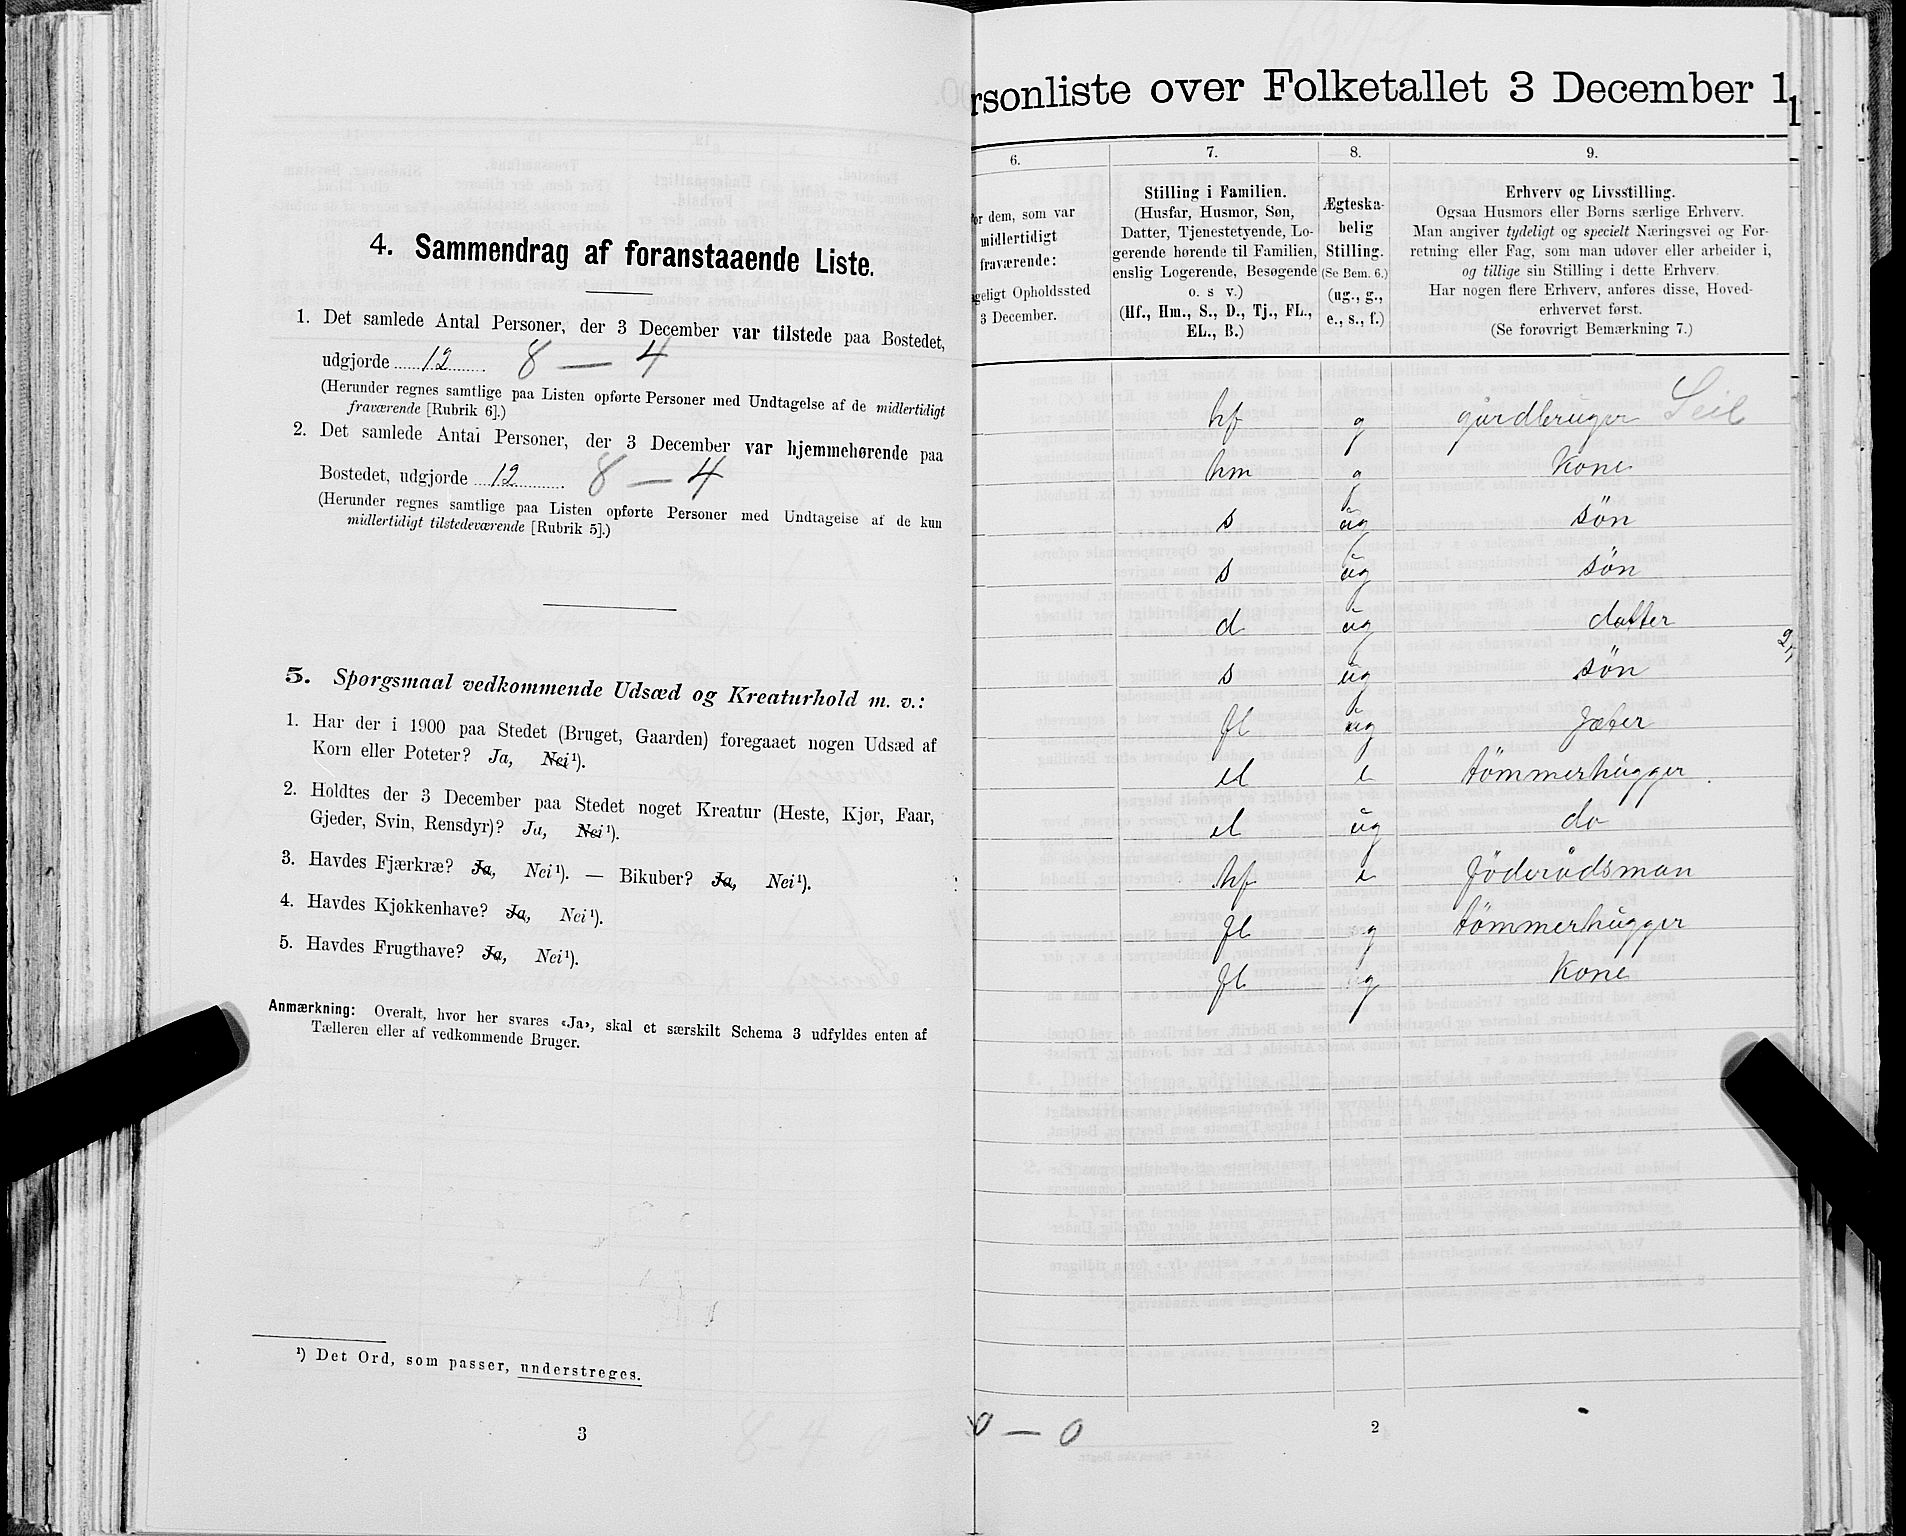 4. Sammendrag af foranstaaende Liste.
1. Det samlede Antal Personer, der 3 December var tilstede paa Bostedet,
udgjorde 12 8 — 4
(Herunder regnes samtlige paa Listen opførte Personer med Undtagelse af de midlertidigt
fraværende [Rubrik 6].)
2. Det samlede Antal Personer, der 3 December var hjemmehørende paa
Bostedet, udgjorde 12 8 — 4
(Herunder regnes samtlige paa Listen opførte Personer med Undtagelse af de kun
midlertidigt tilstedeværende [Rubrik 5].)
5. Spørgsmaal vedkommende Udsæd og Kreaturhold m. v.:
1. Har der i 1900 paa Stedet (Bruget, Gaarden) foregaaet nogen Udsæd af
Korn eller Poteter? Ja, Nei¹).
2. Holdtes der 3 December paa Stedet noget Kreatur (Heste, Kjør, Faar,
Gjeder, Svin, Rensdyr)? Ja, Nei¹).
3. Havdes Fjærkræ? Ja, Nei¹). — Bikuber? Ja, Nei¹).
4. Havdes Kjøkkenhave? Ja, Nei¹).
5. Havdes Frugthave? Ja, Nei¹).
Anmærkning: Overalt, hvor her svares «Ja», skal et særskilt Schema 3 udfyldes enten af
Tælleren eller af vedkommende Bruger.
¹) Det Ord, som passer, understreges.
3
rsonliste over Folketallet 3 December 1
6.
or dem, som var
midlertidigt
fraværende:
geligt Opholdssted
3 December.
7.
Stilling i Familien.
(Husfar, Husmor, Søn,
Datter, Tjenestetyende, Lo-
gerende hørende til Familien,
enslig Logerende, Besøgende
o. s v.)
(Hf., Hm., S., D., Tj., FL.,
EL., B.)
8.
Ægteska-
belig
Stilling.
(Se Bem. 6.)
(ug., g.,
e., s., f.)
9.
Erhverv og Livsstilling.
Ogsaa Husmors eller Børns særlige Erhverv.
Man angiver tydeligt og specielt Næringsvei og For-
retning eller Fag, som man udøver eller arbeider i,
og tillige sin Stilling i dette Erhverv.
Har nogen flere Erhverv, anføres disse, Hoved-
erhvervet først.
(Se forøvrigt Bemærkning 7.)
hf g gårdbruger
hm g Kone
s ug søn
s ug søn
d ug datter
s ug søn
fl ug Jæter
el e tömmerhugger
el ug do
hf e föderådsman
fl g tömmerhugger
fl g Kone
0 — 0
2